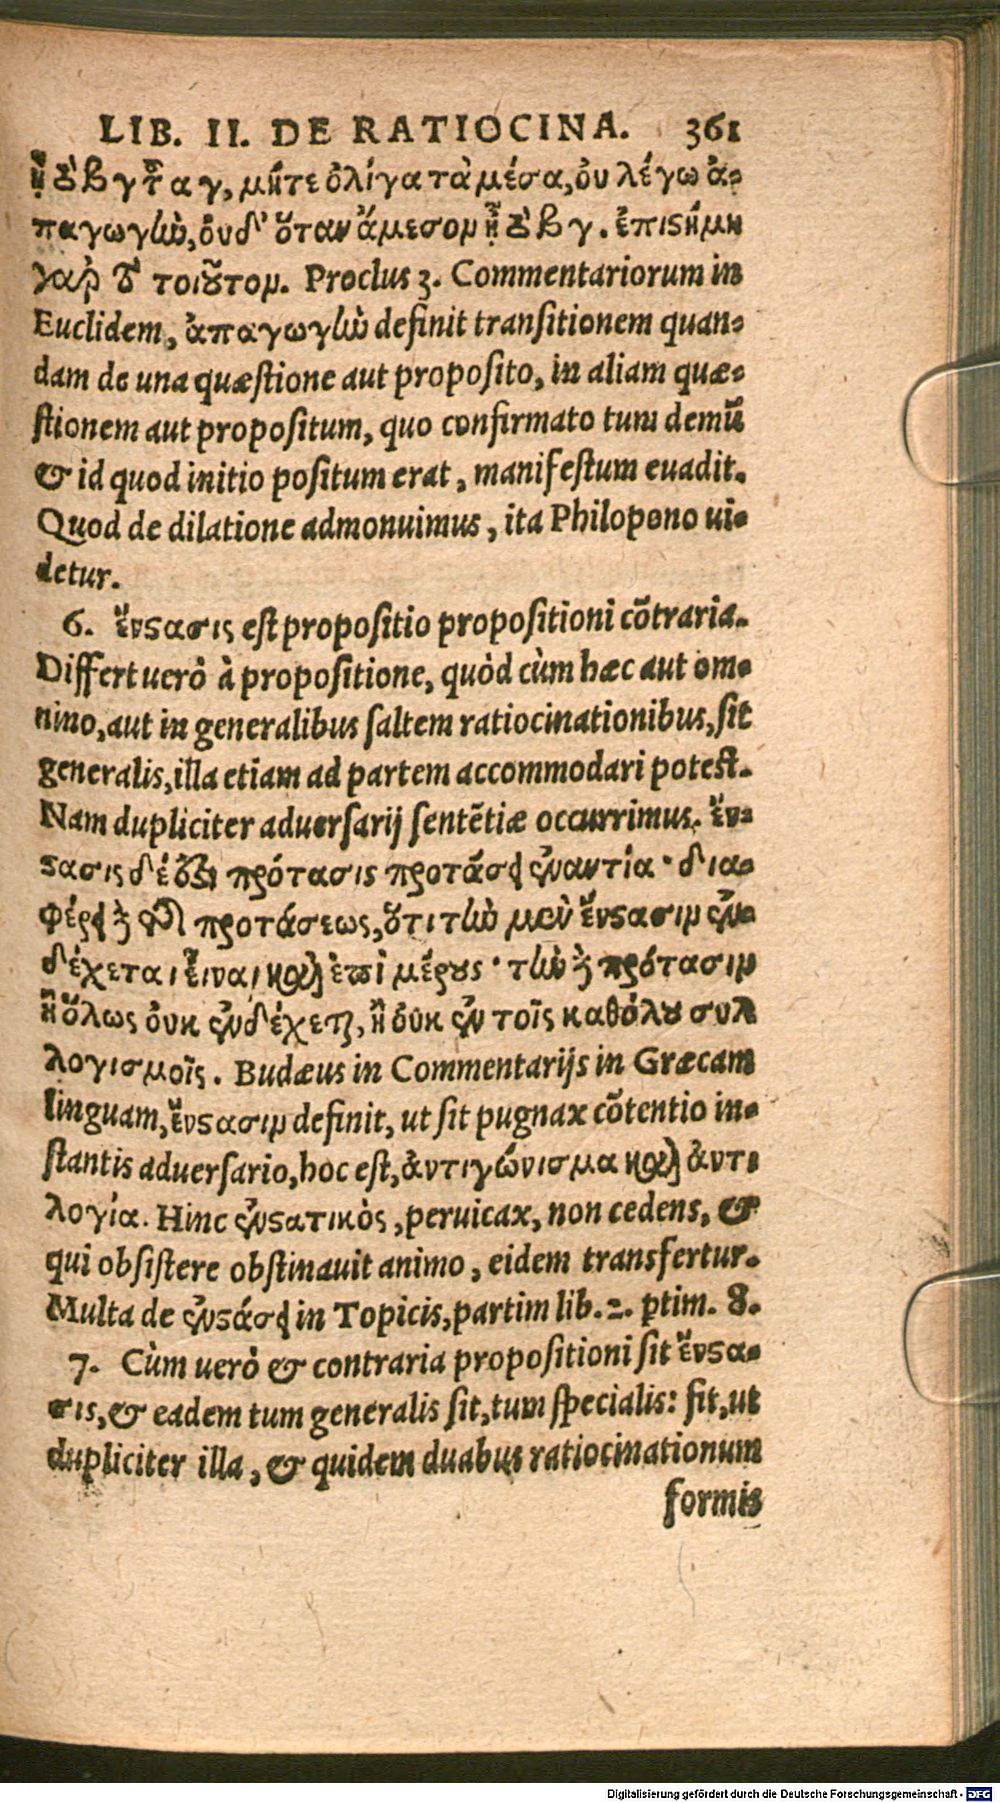 LIB. II. DE RATIOCINA. 361
ᾖ τὸ β γ τῆς α γ, μήτε ὀλίγα τὰ μέσα, οὐ λέγω ἀ-
παγωγὴν, οὐδ' ὅταν ἄμεσον ᾖ τὸ β γ. ἐπιστήμη
γὰρ τὸ τοιοῦτον. Proclus 3. Commentariorum in
Euclidem, ἀπαγωγὴν definit transitionem quan-
dam de una quæstione aut proposito, in aliam quæ-
stionem aut propositum, quo confirmato tum demũ
& id quod initio positum erat, manifestum euadit.
Quod de dilatione admonuimus, ita Philopono ui-
detur.
6. ἔνστασις est propositio propositioni cõtraria.
Differt uerò à propositione, quòd cùm hæc aut om-
nino, aut in generalibus saltem ratiocinationibus, sit
generalis, illa etiam ad partem accommodari potest.
Nam dupliciter aduersarij sentẽtiæ occurrimus. ἔν-
στασις δέ ἐστι πρότασις προτάσει ἐναντία· δια-
φέρει δὲ τῆς προτάσεως, ὅτι τὴν μὲν ἔνστασιν ἐν-
δέχεται εἶναι καὶ ἐπὶ μέρους· τὴν δὲ πρότασιν
ἢ ὅλως οὐκ ἐνδέχεται, ἢ οὐκ ἐν τοῖς καθόλου συλ
λογισμοῖς. Budæus in Commentarijs in Græcam
linguam, ἔνστασιν definit, ut sit pugnax cõtentio in-
stantis aduersario, hoc est, ἀντιγώνισμα καὶ ἀντι
λογία. Hinc ἐνστατικὸς, peruicax, non cedens, &
qui obsistere obstinauit animo, eidem transfertur.
Multa de ἐνστάσει in Topicis, partim lib. 2. ptim. 8.
7. Cùm uerò & contraria propositioni sit ἔνστα-
σις, & eadem tum generalis sit, tum specialis: fit, ut
dupliciter illa, & quidem duabus ratiocinationum
formis
Digitalisierung gefördert durch die Deutsche Forschungsgemeinschaft - DFG